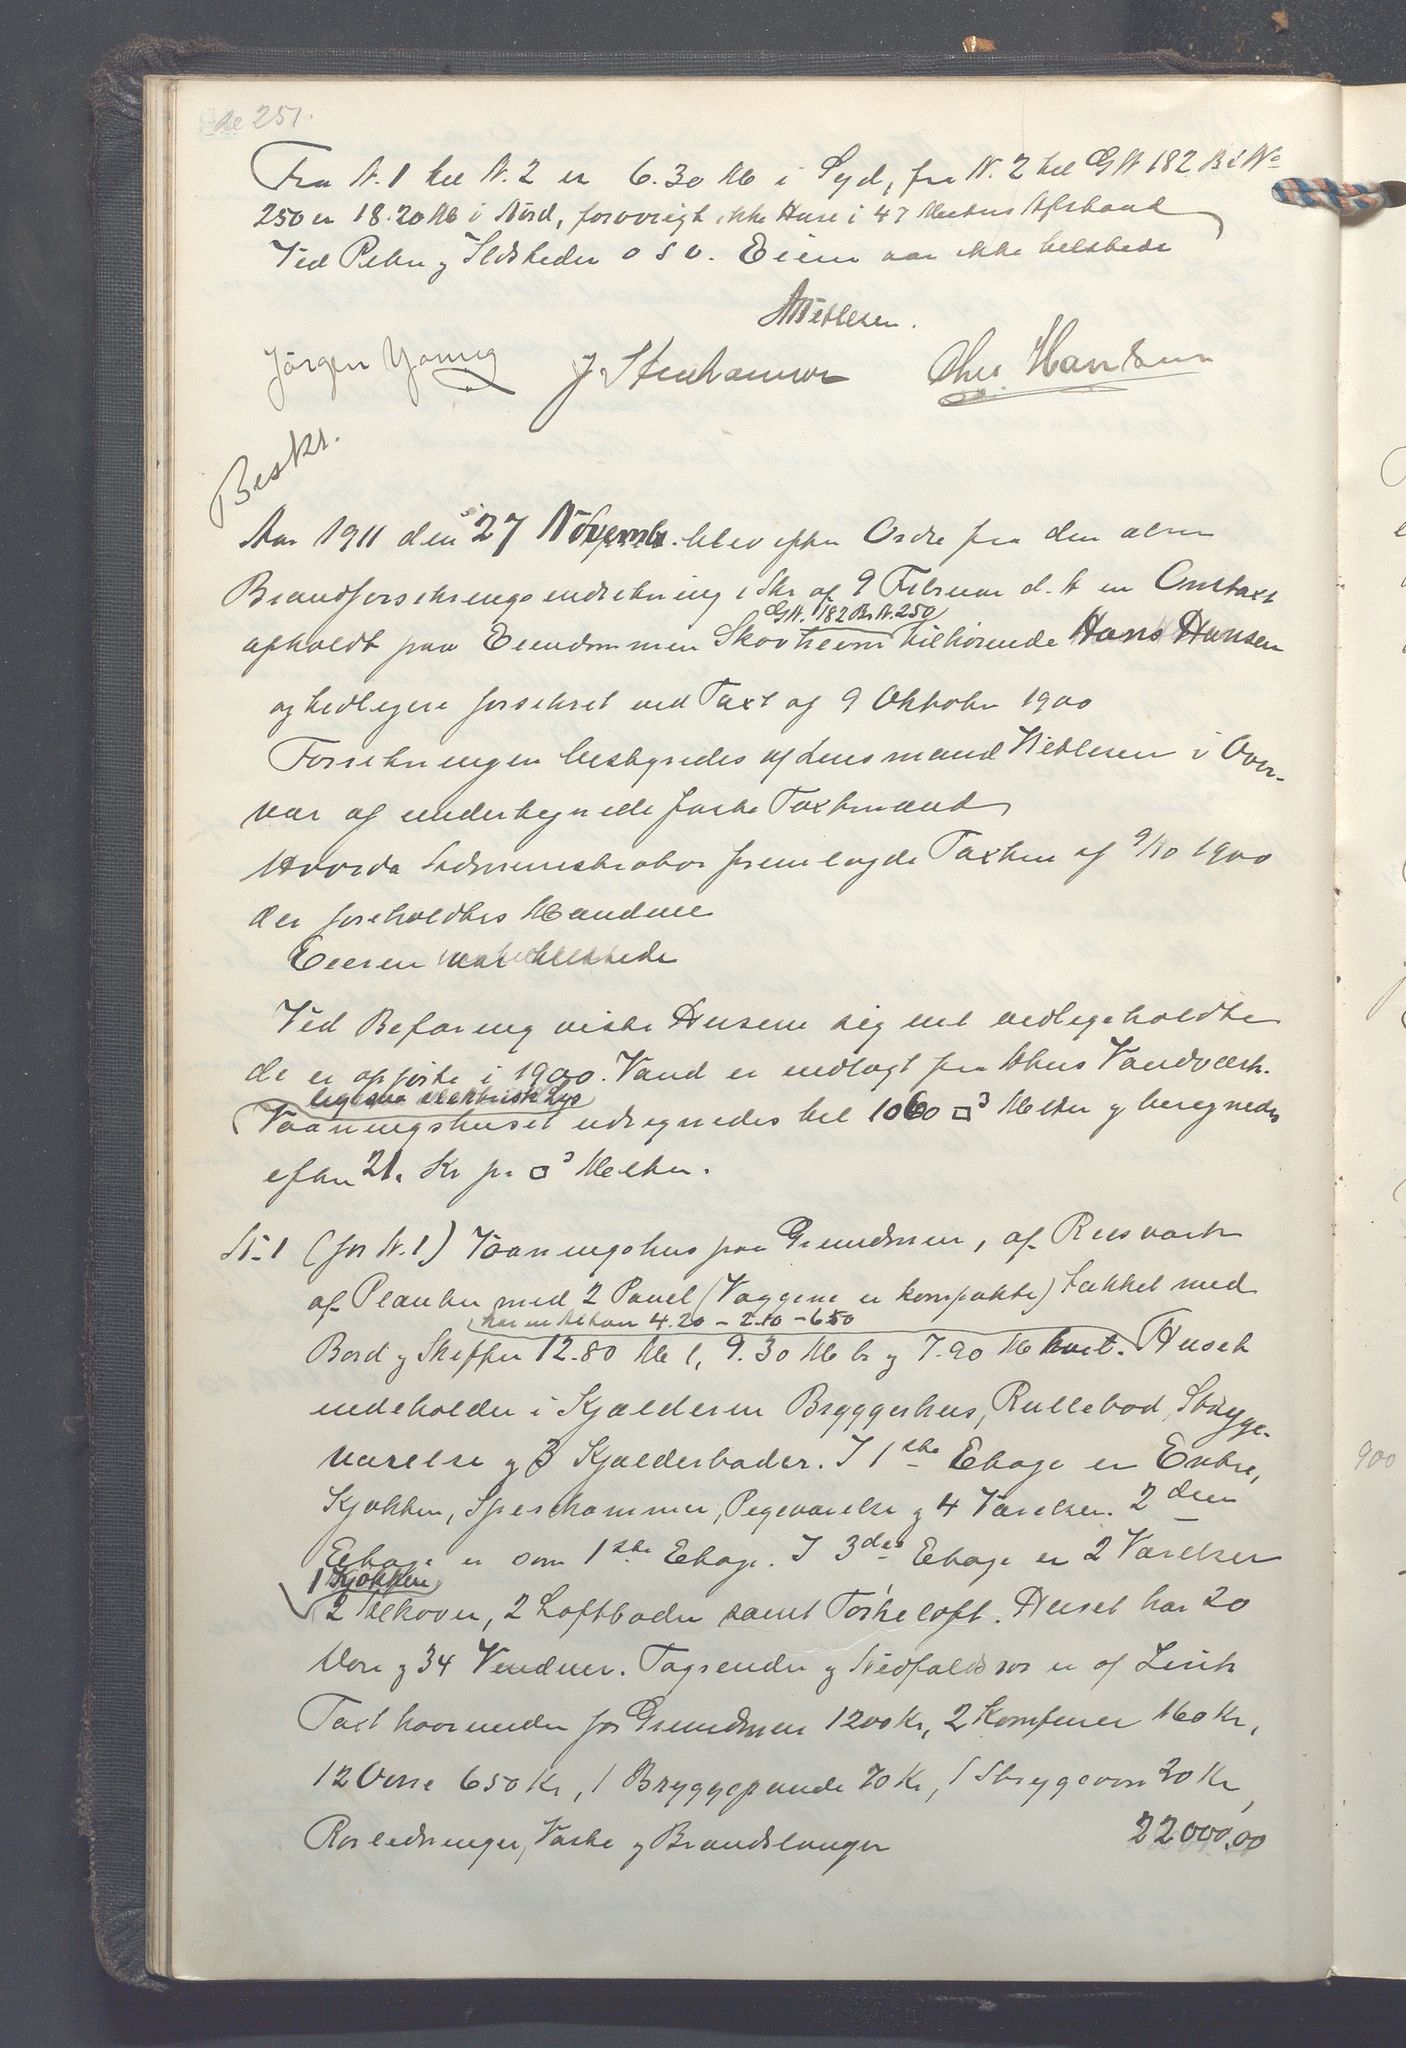 251.
Fra N. 1 til N. 2 er 6.30 M i Syd, fra N. 2 til GN 182 B N
250 er 18.20 M i Nord, forøvrigt ikke Huse i 47 Meters Afstand
Ved Peber og Ildsteder o s v. Eieren var ikke tilstede
Nettesen.
Jørgen Young J. Stenhamar Chr. Hansen
Beskr.
Aar 1911 den 27 Novemb. blev efter Ordre fra den alm
Brandforsikringsindretning i Skr af 9 Februar d. A en Omtaxt
GN. 182 Br N. 250
afholdt paa Eiendommen Skovheim tilhørende Hans Hansen
og tidligere forsikret ved Taxt af 9 Oktober 1900
Forretningen bestyredes af Lensmand Nettesen i Over-
vær af undertegnede faste Taxtmænd
Hvorda Administrator fremlagde Taxten af 9/10 1900
der foreholdtes Mændene
Eieren var tilstede
Ved Befaring viste Husene sig vel vedligeholdte
de er opførte i 1900. Vand er indlagt fra Vandværk.
ligesaa elektrisk Lys
Vaaningshuset udregnedes til 1060 □3 Meter og beregnedes
efter 21. Kr pr □3 Meter.
N-1 (før N. 1) Vaaningshus paa Grundmur, af Reisværk
af Planker med 2 Panel (Væggene er kompakte) tækket med
har en Altan 4.20 - 2.10 - 6.50
Bord og Skiffer 12.80 M l, 9.30 M br og 7.90 M høit. Huset
indeholder i Kjælderen Bryggerhus, Rullebod, Stryge-
værelse og 3 Kjælderboder. I 1ste Etage er Entre,
Kjøkken, Spiskammer, Pigeværelse og 4 Værelser. 2den
Etage er som 1ste Etage. I 3die Etage er 2 Værelser
1 Kjøkken
2 Alkover, 2 Loftboder samt Tørkeloft. Huset har 20
Døre og 34 Vinduer. Tagrender og Nedfaldsrør er af Zink
Taxt hvorunder for Grundmur 1200 Kr, 2 Komfurer 160 Kr,
12 Ovne 650 Kr, 1 Bryggepande 70 Kr, 1 Strygeovn 20 Kr,
Rørledninger, Vaske og Brandslanger 22000.00
900